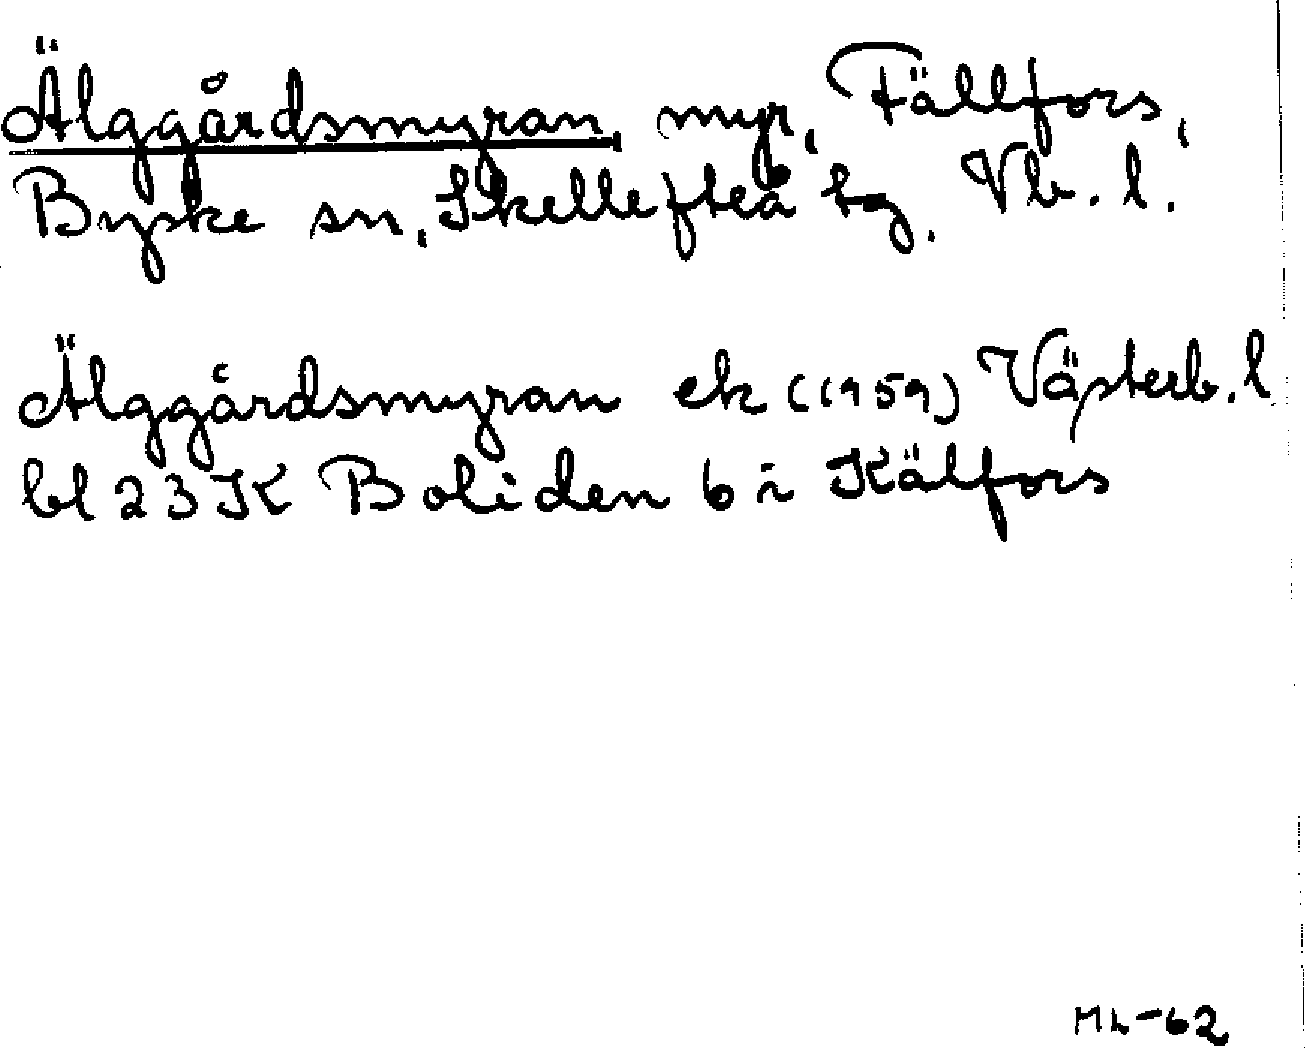 Älggårdsmyran, myr, Fällfors,
Byske sn, Skellefteå tg, Vb. l.
Älggårdsmyran ek (1959) Västerb. l
bl 23 K Boliden 6 i Källfors
ML-62